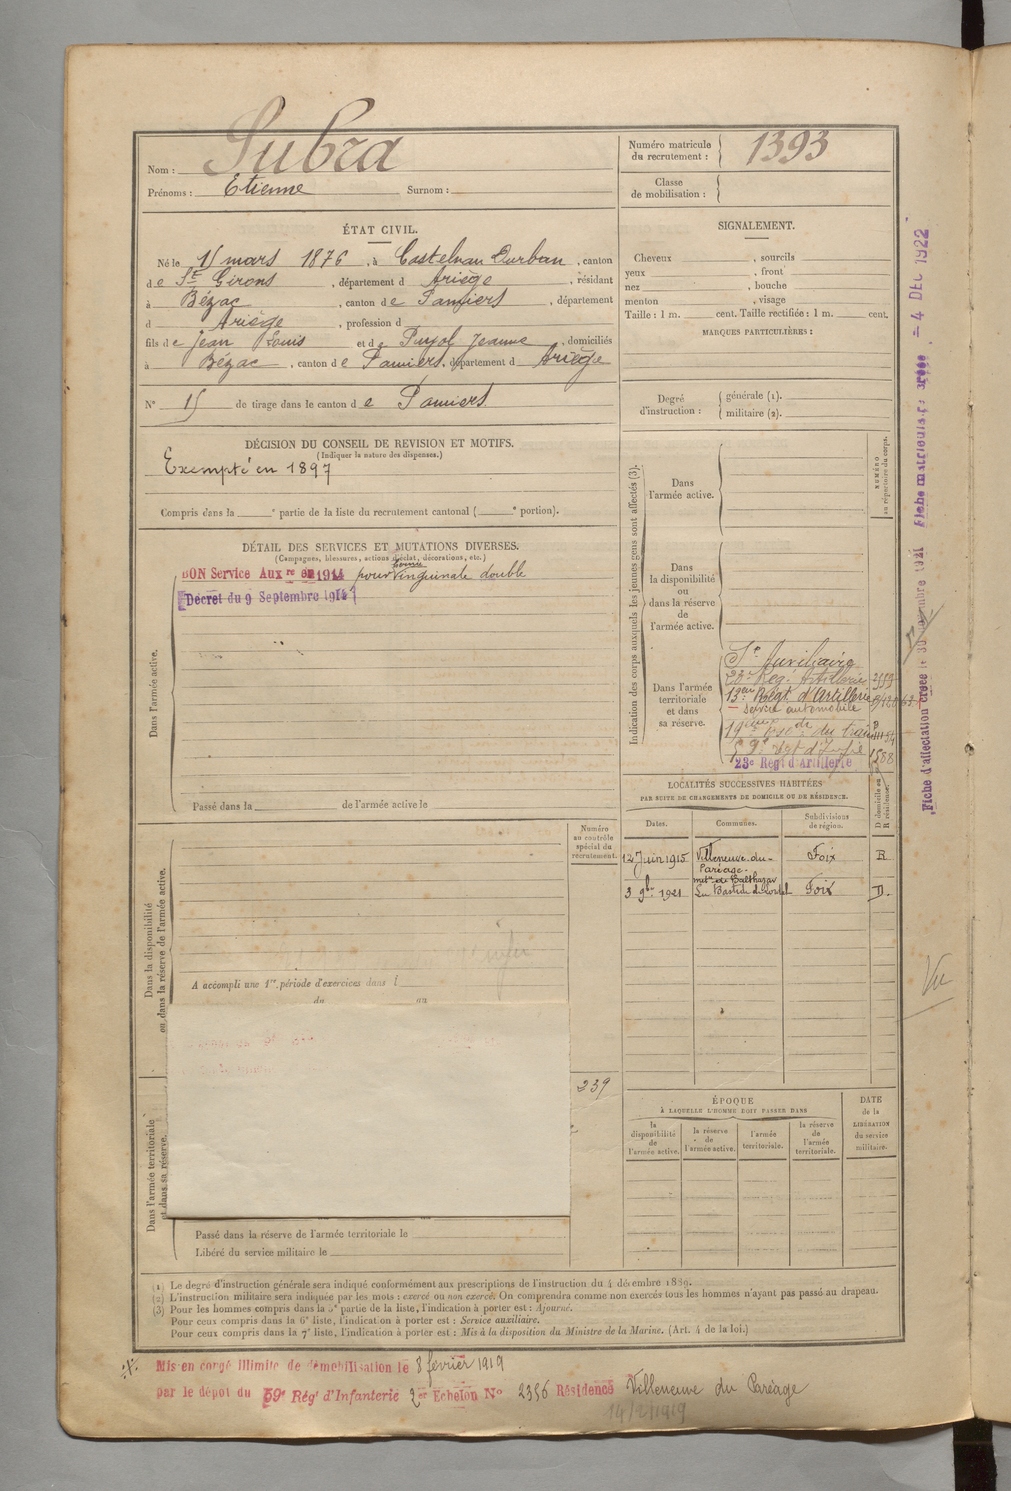 Nom : Subra
Prénoms : Etienne Surnom :
Numéro matricule
du recrutement : 1393
Classe
de mobilisation :
ÉTAT CIVIL.
Né le 15 mars 1876, à Castelnau Durban, canton
de St Girons, département d Ariège, résidant
à Bézac, canton de Pamiers, département
d Ariège, profession d
fils de Jean Louis et de Pujol Jeanne, domiciliés
à Bézac, canton de Pamiers, département d Ariège
N° 15 de tirage dans le canton de Pamiers
DÉCISION DU CONSEIL DE REVISION ET MOTIFS.
(Indiquer la nature des dispenses.)
Exempté en 1897
Compris dans la e partie de la liste du recrutement cantonal ( e portion).
DÉTAIL DES SERVICES ET MUTATIONS DIVERSES.
(Campagnes, blessures, actions d'éclat, décorations, etc.)
BON Service Aux re en 1914 pour hernie inguinale double
Décret du 9 Septembre 1914
Dans l'armée active.
Passé dans la de l'armée active le
Numéro
au contrôle
spécial du
recrutement.
Dans la disponibilité
ou dans la réserve de l'armée active.
A accompli une 1re période d'exercices dans l
du au
239
Dans l'armée territoriale
et dans sa réserve.
Passé dans la réserve de l'armée territoriale le
Libéré du service militaire le
SIGNALEMENT.
Cheveux , sourcils
yeux , front
nez , bouche
menton , visage
Taille : 1 m. cent. Taille rectifiée : 1 m. cent.
MARQUES PARTICULIÈRES :
Degré
d'instruction :
générale (1).
militaire (2).
Indication des corps auxquels les jeunes gens sont affectés (3).
NUMÉRO
au répertoire du corps.
Dans
l'armée active.
Dans
la disponibilité
ou
dans la réserve
de
l'armée active.
Dans l'armée
territoriale
et dans
sa réserve.
Sce Auxiliaire
23e Rég. Artillerie
13e Régt d'Artillerie
service automobile
19e du train
59e Rgt d'Infie 1588
23e Régt d'Artillerie
LOCALITÉS SUCCESSIVES HABITÉES
PAR SUITE DE CHANGEMENTS DE DOMICILE OU DE RÉSIDENCE.
Dates. Communes. Subdivisions
de région.
D domicile ou
R résidence.
12 Juin 1915 Villeneuve-du-
Paréage Foix R
met. de Balthazar
3 9bre 1921 La Bastide de Lordat Foix D.
ÉPOQUE
À LAQUELLE L'HOMME DOIT PASSER DANS
la
disponibilité
de
l'armée active.
la réserve
de
l'armée active.
l'armée
territoriale.
la réserve
de
l'armée
territoriale.
DATE
de la
LIBÉRATION
du service
militaire.
(1) Le degré d'instruction générale sera indiqué conformément aux prescriptions de l'instruction du 4 décembre 1889.
(2) L'instruction militaire sera indiquée par les mots : exercé ou non exercé. On comprendra comme non exercés tous les hommes n'ayant pas passé au drapeau.
(3) Pour les hommes compris dans la 5e partie de la liste, l'indication à porter est : Ajourné.
Pour ceux compris dans la 6e liste, l'indication à porter est : Service auxiliaire.
Pour ceux compris dans la 7e liste, l'indication à porter est : Mis à la disposition du Ministre de la Marine. (Art. 4 de la loi.)
Mis en congé illimité de démobilisation le 8 février 1919
par le dépôt du 59e Régt d'Infanterie 2er Echelon N° 2356 Résidence Villeneuve du Paréage
14/2/1919
Fiche matricule créée - 4 DEC 1922
Fiche d'affectation créée le 30 novembre 1921
Vu